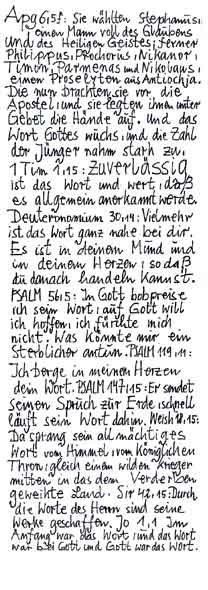 Apg 6,5f: Sie wählten Stephanus:
einen Mann voll des Glaubens
und des Heiligen Geistes; ferner
Philippus, Prochorus, Nikanor,
Timon, Parmenas und Nikolaus,
einem Proselyten aus Antiochia.
Die nun brachten sie vor die
Apostel und sie legten ihnen unter
Gebet die Hände auf. Und das
Wort Gottes wuchs, und die Zahl
der Jünger nahm stark zu.
1 Tim 1,15: Zuverlässig
ist das Wort und wert, daß
es allgemein anerkannt werde.
Deuteronomium 30,14: Vielmehr
ist das Wort ganz nahe bei dir.
Es ist in deinem Mund und
in deinem Herzen; so daß
du danach handeln kannst.
PSALM 56,5: In Gott lobpreise
ich sein Wort; auf Gott will
ich hoffen; ich fürchte mich
nicht. Was könnte mir ein
Sterblicher antun. PSALM 119,11:
Ich berge in meinem Herzen
dein Wort. PSALM 147,15: Er sendet
seinen Spruch zur Erde; schnell
läuft sein Wort dahin. Weish 18,15:
Da sprang sein allmächtiges
Wort vom Himmel, vom königlichen
Thron, gleich einem wilden Krieger
mitten in das dem Verderben
geweihte Land. Sir 42,15: Durch
die Worte des Herrn sind seine
Werke geschaffen. Jo 1,1 Im
Anfang war das Wort und das Wort
war bei Gott und Gott war das Wort.